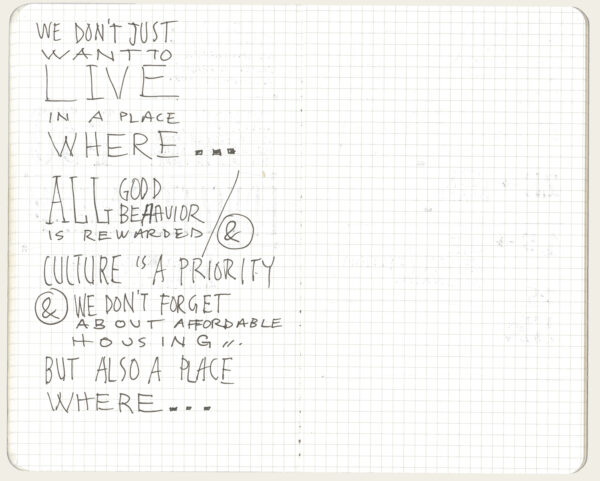 WE DON'T JUST
WANT TO
LIVE
IN A PLACE
WHERE...
ALL GOOD
BEHAVIOR
IS REWARDED / &
CULTURE IS A PRIORITY
& WE DON'T FORGET
ABOUT AFFORDABLE
HOUSING...
BUT ALSO A PLACE
WHERE...